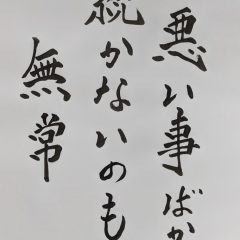 悪い事ばか
続かないのも
無常